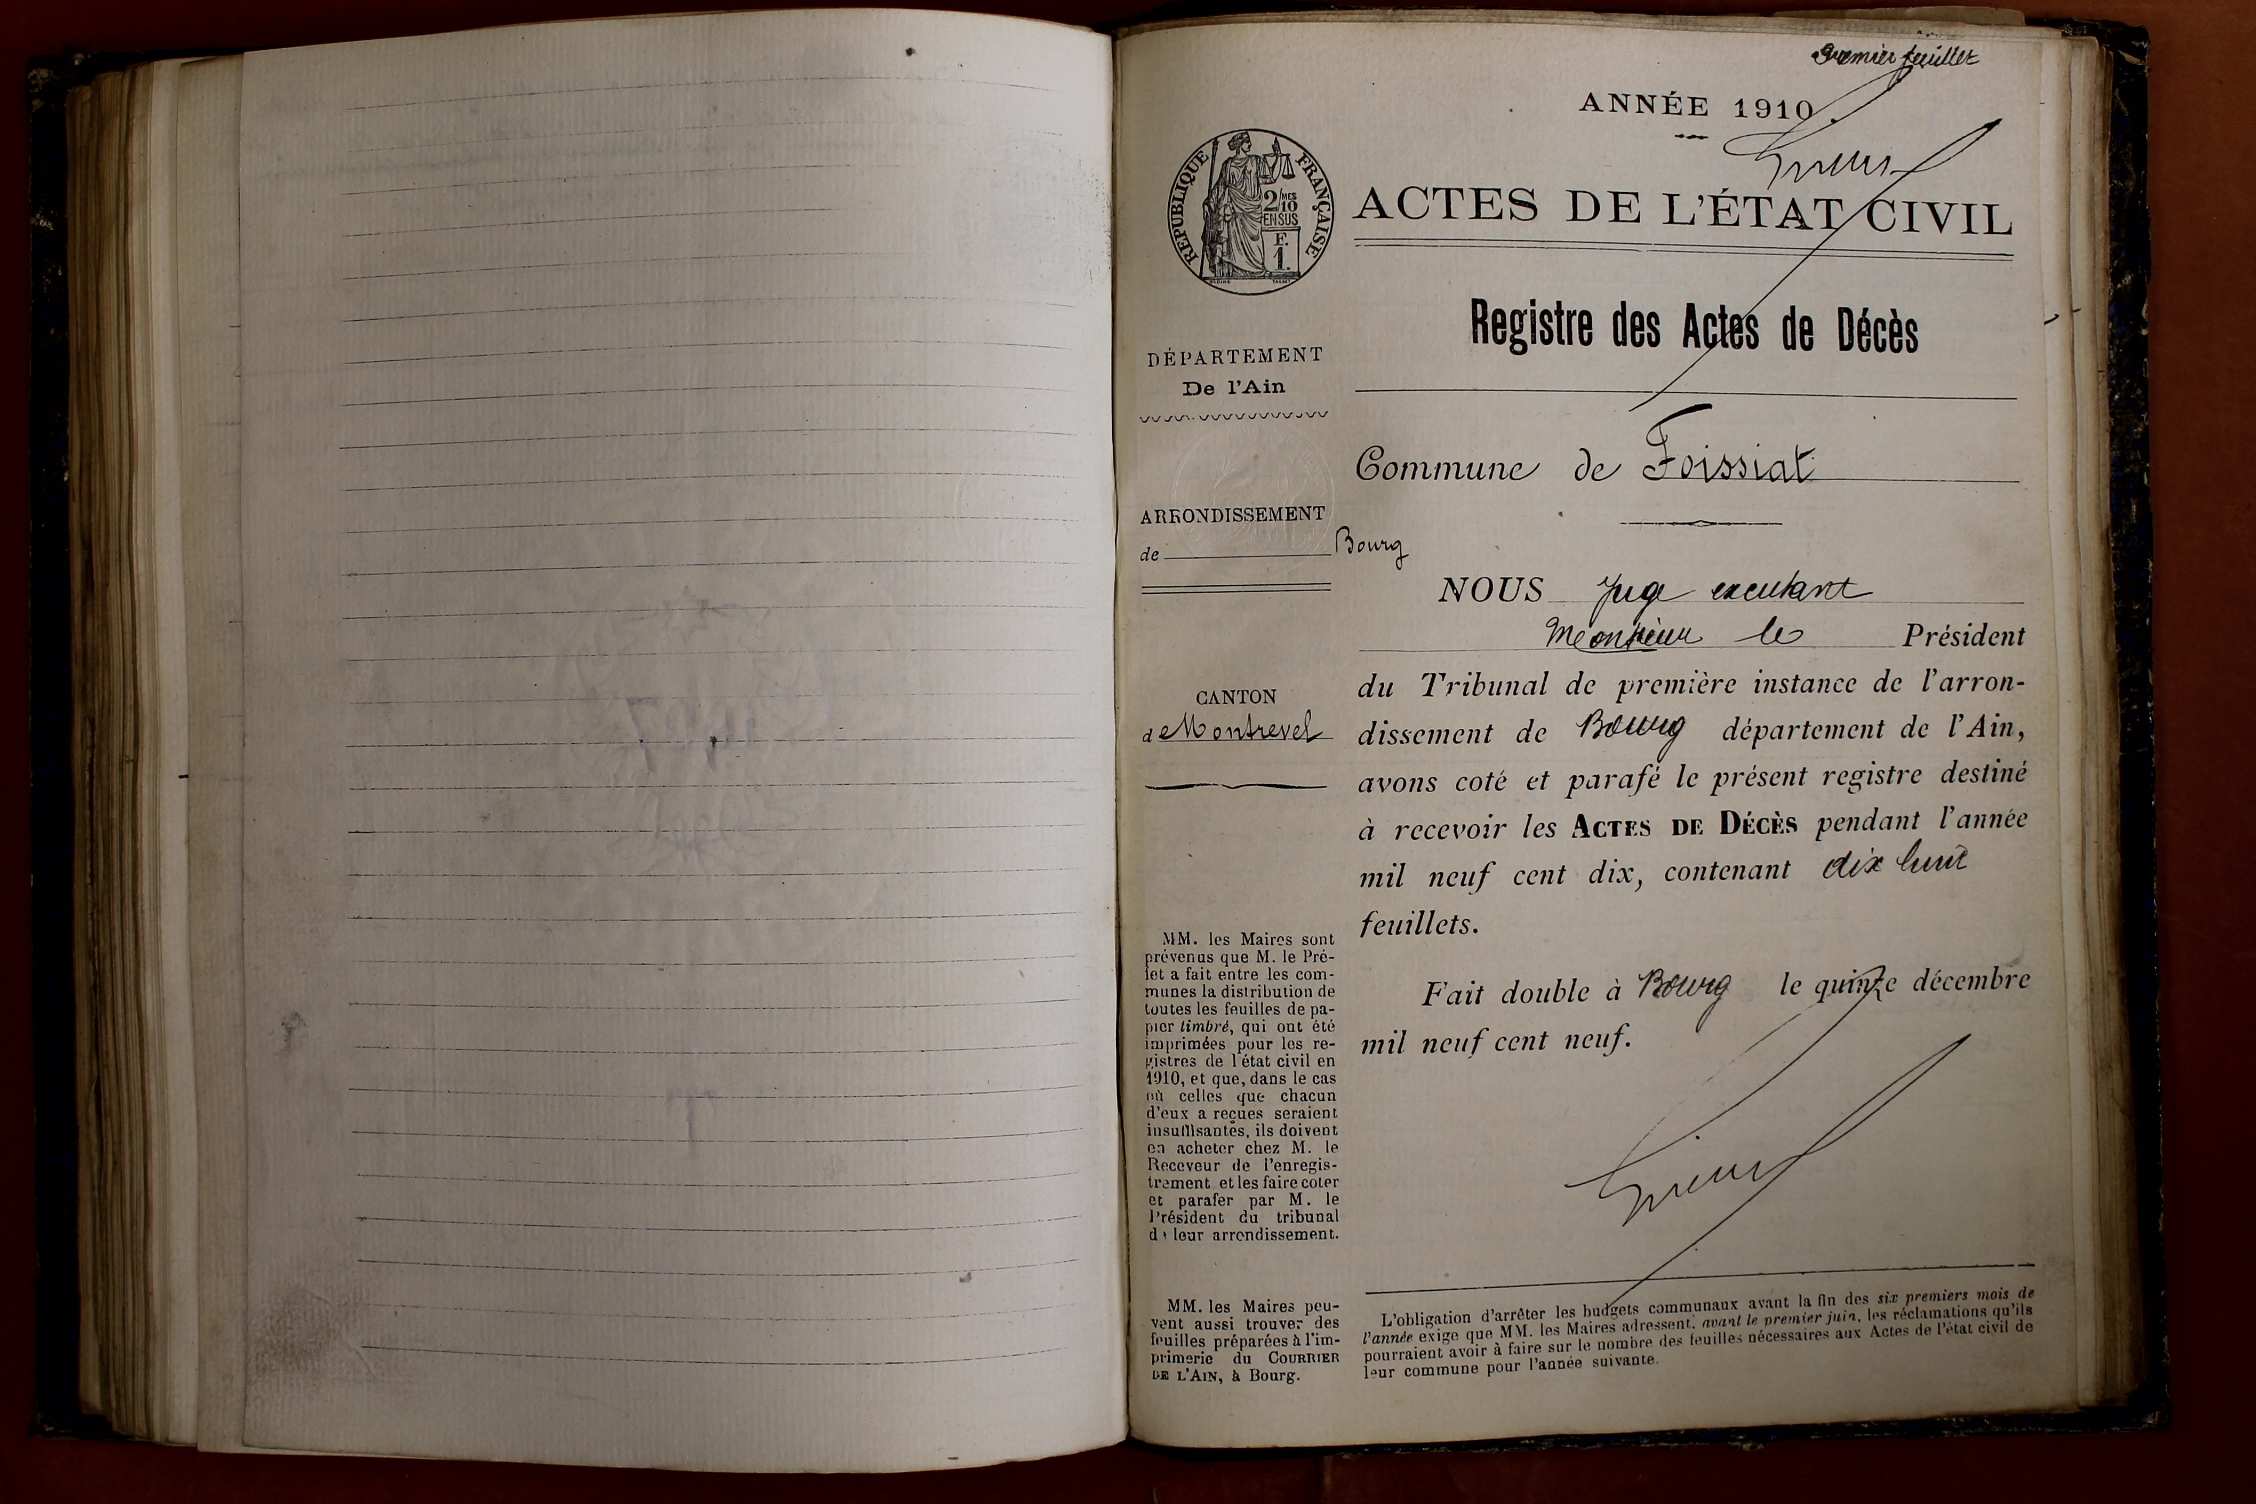 premier feuillet
ANNÉE 1910
RÉPUBLIQUE FRANÇAISE
2/MES
10
EN SUS
F.
1.
ACTES DE L'ÉTAT CIVIL
Registre des Actes de Décès
DÉPARTEMENT
De l'Ain
Commune de Foissiat
ARRONDISSEMENT
de Bourg
CANTON
de Montrevel
NOUS Juge
Monsieur le Président
du Tribunal de première instance de l'arron-
dissement de Bourg département de l'Ain,
avons coté et parafé le présent registre destiné
à recevoir les ACTES DE DÉCÈS pendant l'année
mil neuf cent dix, contenant dix huit
feuillets.
Fait double à Bourg le quinze décembre
mil neuf cent neuf.
MM. les Maires sont
prévenus que M. le Pré-
fet a fait entre les com-
munes la distribution de
toutes les feuilles de pa-
pier timbré, qui ont été
imprimées pour les re-
gistres de l'état civil en
1910, et que, dans le cas
où celles que chacun
d'eux a reçues seraient
insuffisantes, ils doivent
en acheter chez M. le
Receveur de l'enregis-
trement et les faire coter
et parafer par M. le
Président du tribunal
de leur arrondissement.
MM. les Maires peu-
vent aussi trouver des
feuilles préparées à l'im-
primerie du COURRIER
DE L'AIN, à Bourg.
L'obligation d'arrêter les budgets communaux avant la fin des six premiers mois de
l'année exige que MM. les Maires adressent, avant le premier juin, les réclamations qu'ils
pourraient avoir à faire sur le nombre des feuilles nécessaires aux Actes de l'état civil de
leur commune pour l'année suivante.